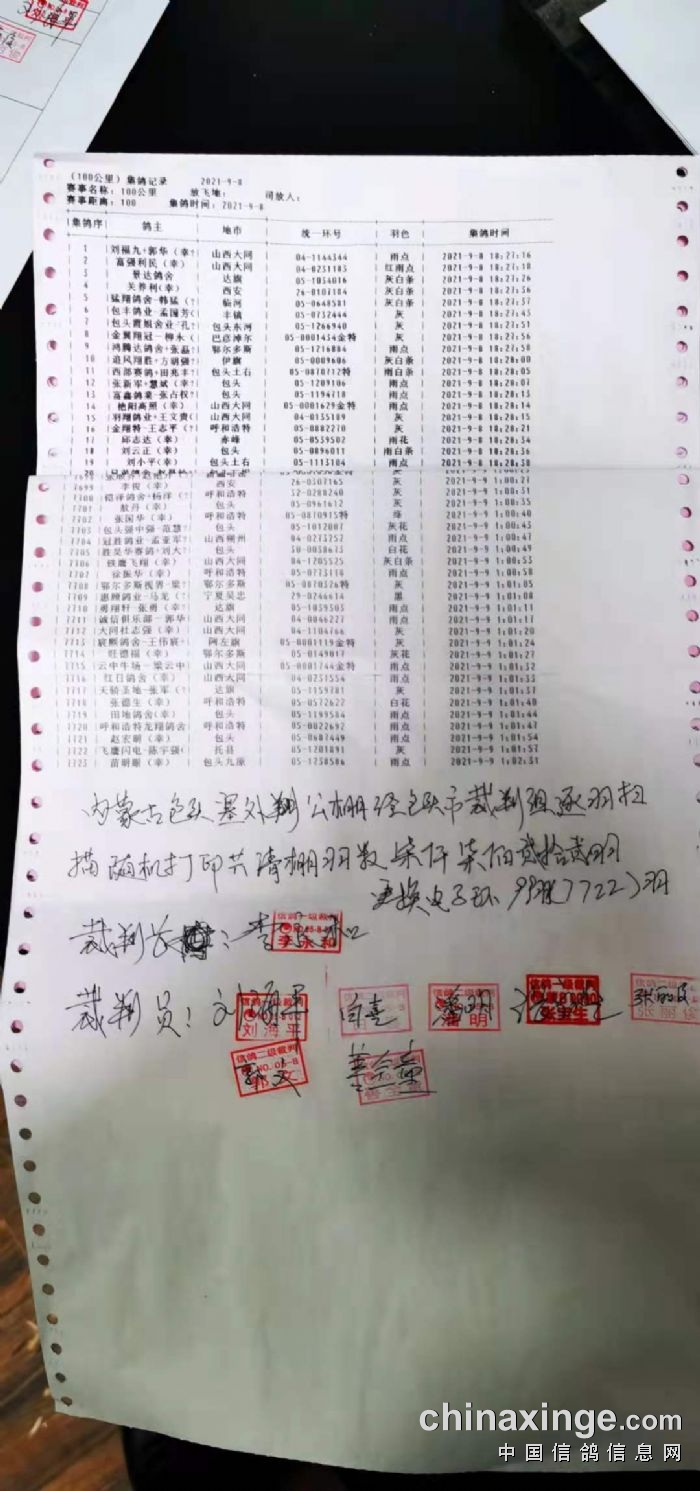 (100公里) 集鸽记录 2021-9-8
赛事名称: 100公里 放飞地: 司放人:
赛事距离: 100 集鸽时间: 2021-9-8
集鸽序 鸽主 地市 统一环号 羽色 集鸽时间
1 刘福九+郭华(幸? 山西大同 04-1144344 雨点 2021-9-8 18:27:16
2 富强利民(幸) 山西大同 04-0231183 红雨点 2021-9-8 18:27:18
3 景达鸽舍 达旗 05-1034016 灰白条 2021-9-8 18:27:26
4 关养利(幸) 西安 26-0107184 灰白条 2021-9-8 18:27:36
5 猛翔鸽舍-韩猛(? 临河 05-0648581 灰白条 2021-9-8 18:27:37
6 包丰鸽业-孟国芳( 丰镇 05-0732444 灰 2021-9-8 18:27:43
7 包头霞姐舍业-孔? 包头东河 05-1266940 灰 2021-9-8 18:27:51
8 金翼翔冠-柳永( 巴彦淖尔 05-0001434金特 灰 2021-9-8 18:27:56
9 鸿腾达鸽舍+张磊? 鄂尔多斯 05-1216884 雨点 2021-9-8 18:27:58
10 追风翔胜+方明强? 伊旗 05-0009606 灰白条 2021-9-8 18:28:00
11 西部赛鸽+田兆丰? 包头土右 05-0870712特 雨白条 2021-9-8 18:28:05
12 张新军+慧斌(幸? 包头 05-1209106 雨点 2021-9-8 18:28:07
13 富鑫鸽业-张占权? 包头 05-1194718 雨点 2021-9-8 18:28:13
14 艳阳高照(幸) 山西大同 05-0001629金特 雨点 2021-9-8 18:28:14
15 羽翔鸽业+王文贵( 山西大同 04-0135189 灰 2021-9-8 18:28:15
16 金翔特-王志平(? 呼和浩特 05-0882270 灰 2021-9-8 18:28:21
17 邱志达(幸) 赤峰 05-0539502 雨花 2021-9-8 18:28:34
18 刘云正(幸) 包头 05-0896011 雨白条 2021-9-8 18:28:36
19 刘小平(幸) 包头土右 05-1113104 雨点 2021-9-8 18:28:38
7699 李俊(幸) 西安 26-0307165 灰 2021-9-9 1:00:31
7700 铠洋鸽舍-杨洋(? 呼和浩特 32-0280240 灰 2021-9-9 1:00:35
7701 敖丹(幸) 包头 05-0961612 灰 2021-9-9 1:00:40
7702 张国华(幸) 呼和浩特 05-0870915特 绛 2021-9-9 1:00:43
7703 包头强中强-范慧? 包头 05-1012007 灰花 2021-9-9 1:00:45
7704 冠胜鸽业-孟亚军? 山西朔州 04-0273252 雨点 2021-9-9 1:00:47
7705 胜昊华赛鸽+刘大? 包头 30-0038673 白花 2021-9-9 1:00:49
7706 铁鹰飞翔(幸) 山西大同 04-1205525 灰白条 2021-9-9 1:00:53
7707 徐振华(幸) 呼和浩特 05-0773118 雨点 2021-9-9 1:00:58
7708 鄂尔多斯视界-梁? 鄂尔多斯 05-0870326特 灰 2021-9-9 1:01:05
7709 惠顾鸽业-马龙(? 宁夏吴忠 29-0246614 黑 2021-9-9 1:01:08
7710 勇翔轩-张勇(幸) 达旗 05-1039503 雨点 2021-9-9 1:01:11
7711 诚信俱乐部-郭华 山西大同 04-0046227 雨点 2021-9-9 1:01:17
7712 大同杜志强(幸) 山西大同 04-1104766 灰 2021-9-9 1:01:20
7713 宸熙鸽舍-王伟宸? 阿左旗 05-0001119金特 灰 2021-9-9 1:01:24
7714 旺德福(幸) 鄂尔多斯 05-0149017 灰花 2021-9-9 1:01:27
7715 云中牛场-梁云中 山西大同 05-0001744金特 雨点 2021-9-9 1:01:32
7716 红日鸽舍(幸) 山西大同 04-0231554 雨点 2021-9-9 1:01:34
7717 天骄圣地-张军(? 达旗 05-1159781 灰 2021-9-9 1:01:37
7718 张德生(幸) 呼和浩特 05-0572622 白花 2021-9-9 1:01:40
7719 田地鸽舍(幸) 包头 05-1199584 雨点 2021-9-9 1:01:44
7720 呼和浩特龙翔鸽舍 呼和浩特 05-0022692 雨点 2021-9-9 1:01:47
7721 赵宏明(幸) 包头 05-0687449 雨点 2021-9-9 1:01:54
7722 飞鹰闪电-陈宇强( 托县 05-1201891 灰 2021-9-9 1:01:57
7723 苗明明(幸) 包头九原 05-1238586 雨点 2021-9-9 1:02:31
内蒙古包头塞外翔公棚经包头市裁判组逐羽扫
描随机打印共清棚羽数柒仟柒佰贰拾贰羽
更换电子环 (7722)羽
裁判长: 李永和
李永和
裁判员: 刘海平 白喜 潘明
刘海平 潘明 张宝生
信鸽二级裁判 郭文
chinaxinge.com
中国信鸽信息网